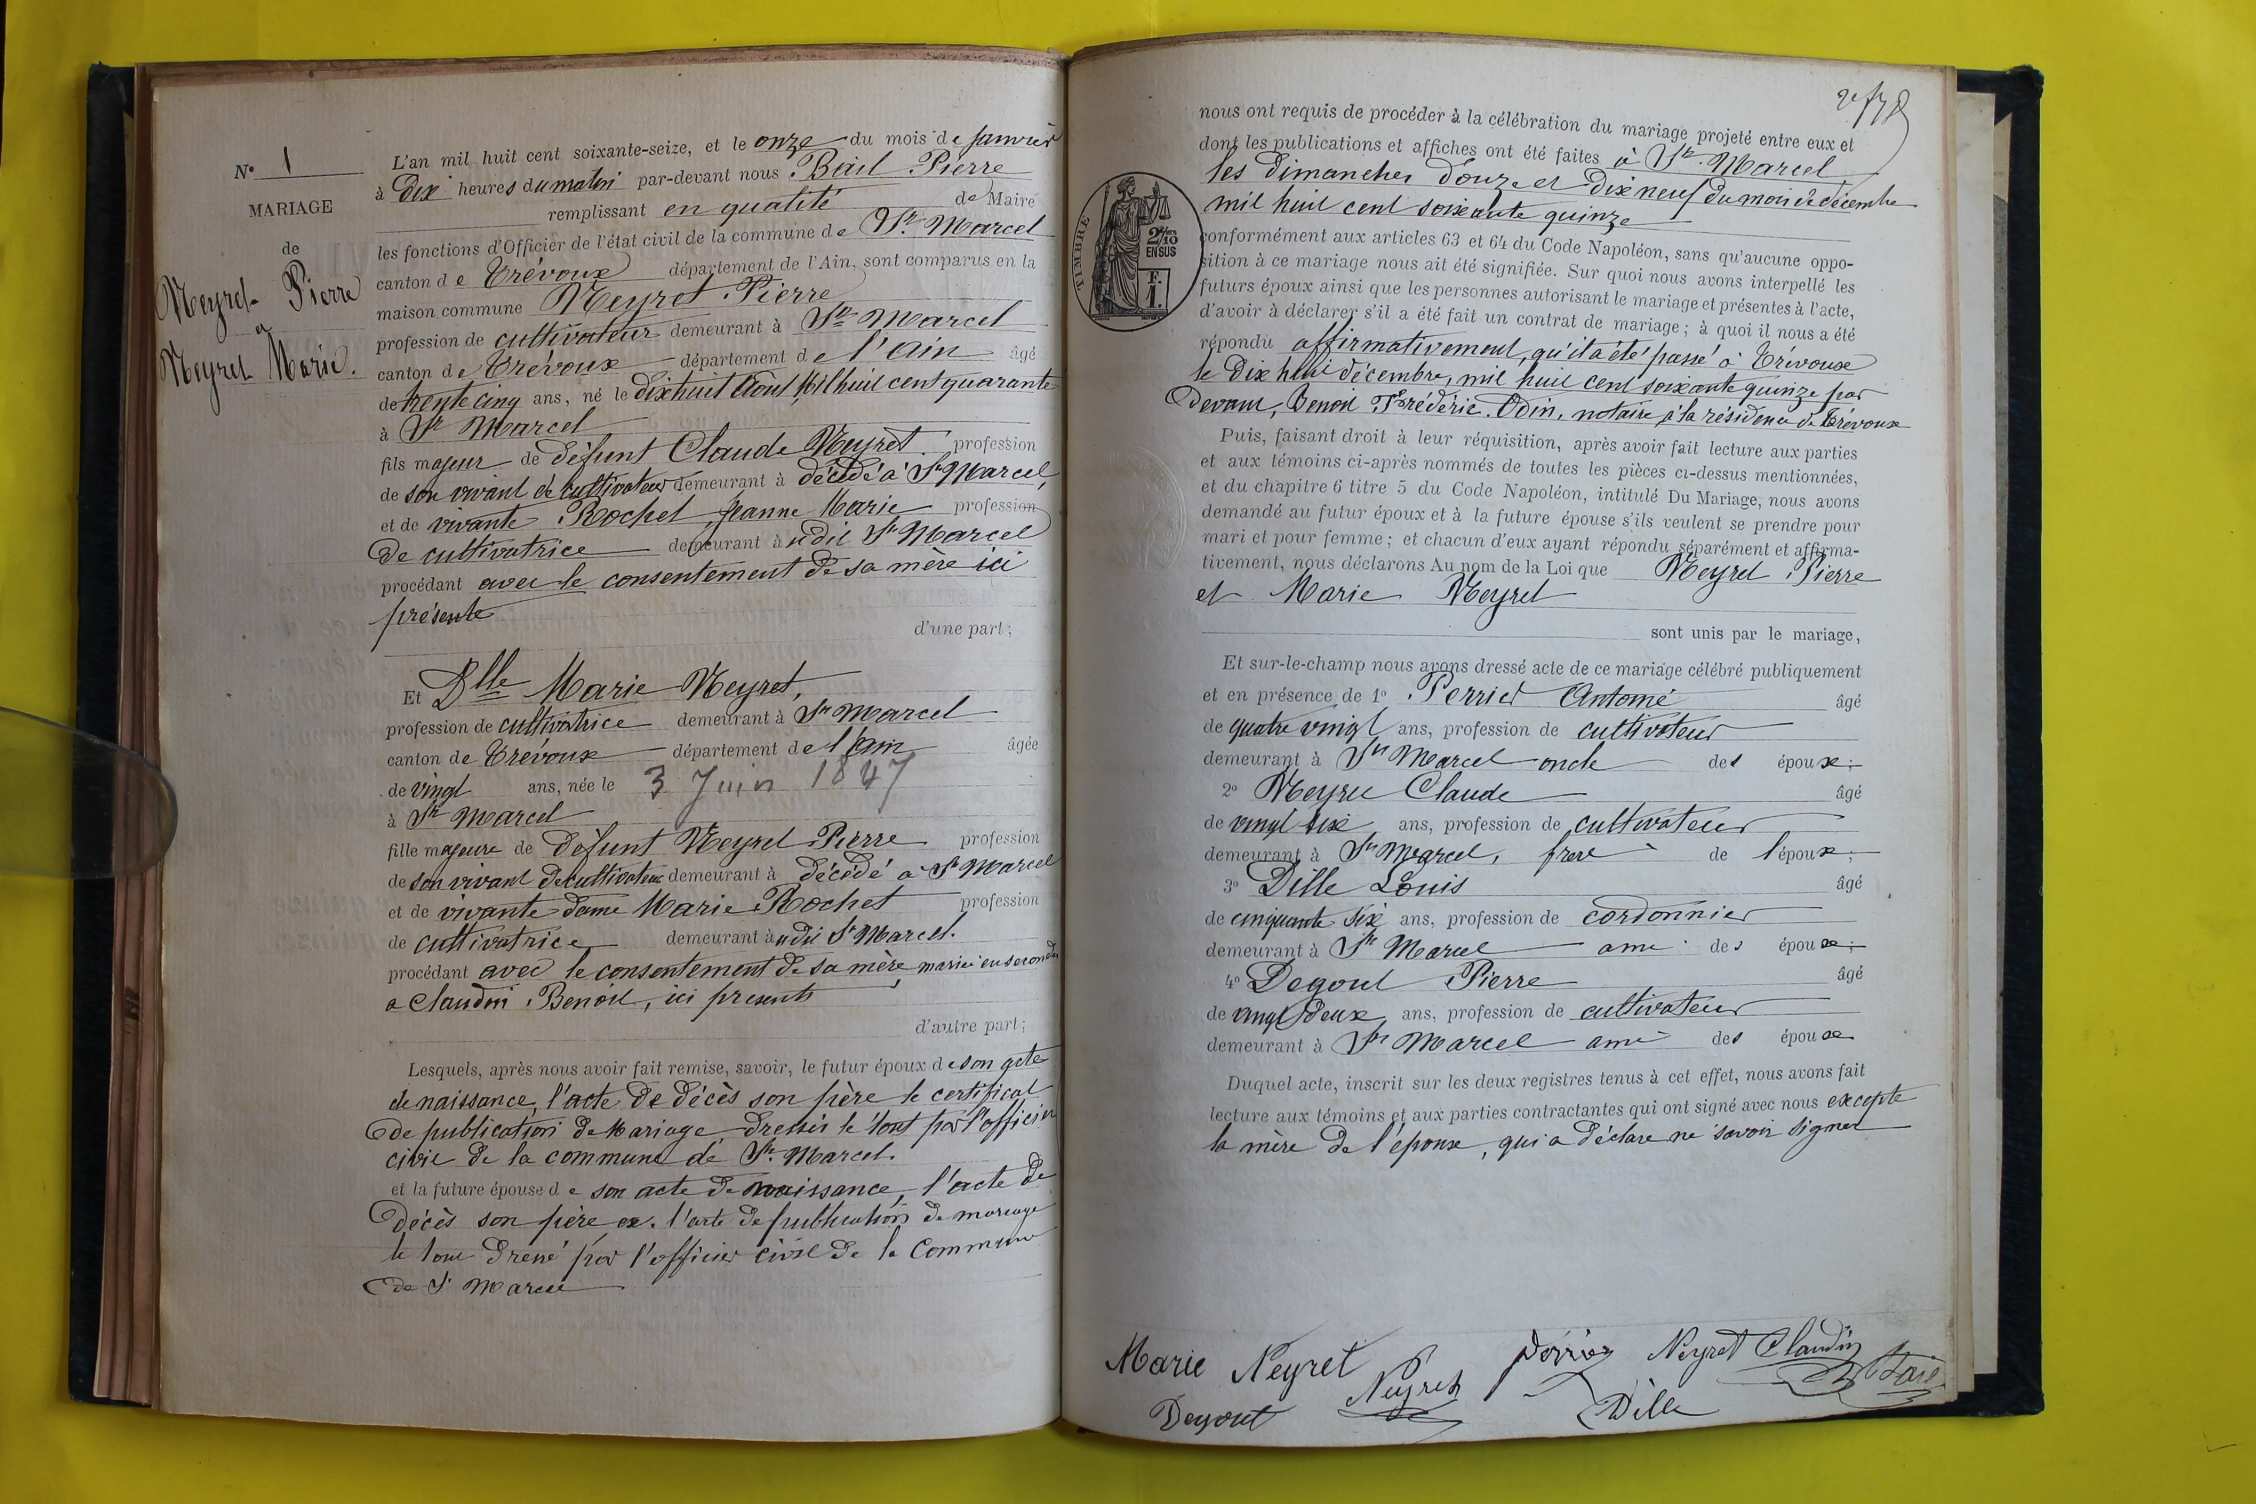 N° 1
MARIAGE
de
Neyret Pierre
à
Neyret Marie.
L'an mil huit cent soixante-seize, et le onze du mois de Janvier
à Dix heures du matin par-devant nous Bail Pierre
remplissant en qualité de Maire
les fonctions d'Officier de l'état civil de la commune de St. Marcel
canton de Trévoux département de l'Ain, sont comparus en la
maison commune Neyret Pierre
profession de cultivateur demeurant à St Marcel
canton de Trévoux département de l'Ain âgé
de trente cinq ans, né le dix huit Août Mil huit cent quarante
à St Marcel
fils majeur de défunt Claude Neyret profession
de son vivant de cultivateur demeurant à décédé à St Marcel,
et de vivante Rochet Jeanne Marie profession
de cultivatrice demeurant à udit St Marcel
procédant avec le consentement de sa mère ici
présente
d'une part;
Et Dlle Marie Neyret,
profession de cultivatrice demeurant à St Marcel
canton de Trévoux département de l'Ain âgée
de vingt ans, née le 3 Juin 1847
à St Marcel
fille majeure de défunt Neyret Pierre profession
de son vivant de cultivateur demeurant à décédé à St Marcel
et de vivante dame Marie Rochet profession
de cultivatrice demeurant à udit St Marcel.
procédant avec le consentement de sa mère, mariée en secondes
a Claudin Benoit, ici presents
d'autre part;
Lesquels, après nous avoir fait remise, savoir, le futur époux de son acte
de naissance, l'acte de décès son père le certificat
de publication de Mariage dressés le tout par l'officier
civil de la commune de St. Marcel.
et la future épouse de son acte de naissance, l'acte de
décès son père et l'acte de publication de mariage
le tout dressé par l'officier civil de la commune
de St Marcel
nous ont requis de procéder à la célébration du mariage projeté entre eux et
dont les publications et affiches ont été faites à St. Marcel
les Dimanches Douze et Dix neuf du mois de décembre
mil huit cent soixante quinze
TIMBRE
2/10
EN SUS
F.
1.
conformément aux articles 63 et 64 du Code Napoléon, sans qu'aucune oppo-
sition à ce mariage nous ait été signifiée. Sur quoi nous avons interpellé les
futurs époux ainsi que les personnes autorisant le mariage et présentes à l'acte,
d'avoir à déclarer s'il a été fait un contrat de mariage; à quoi il nous a été
répondu affirmativement, qu'il a été passé à Trévoux
le Dix huit décembre, mil huit cent soixante quinze par
devant, Benoit Frédéric Odin, notaire à la résidence de Trévoux
Puis, faisant droit à leur réquisition, après avoir fait lecture aux parties
et aux témoins ci-après nommés de toutes les pièces ci-dessus mentionnées,
et du chapitre 6 titre 5 du Code Napoléon, intitulé Du Mariage, nous avons
demandé au futur époux et à la future épouse s'ils veulent se prendre pour
mari et pour femme; et chacun d'eux ayant répondu séparément et affirma-
tivement, nous déclarons Au nom de la Loi que Neyret Pierre
et Marie Neyret
sont unis par le mariage,
Et sur-le-champ nous avons dressé acte de ce mariage célébré publiquement
et en présence de 1° Perrier Antoine âgé
de quatre vingt ans, profession de cultivateur
demeurant à St Marcel oncle des époux;
2° Neyret Claude âgé
de vingt six ans, profession de cultivateur
demeurant à St Marcel, frère de l'époux;
3° Dille Louis âgé
de cinquante six ans, profession de cordonnier
demeurant à St Marcel ami des époux;
4° Degout Pierre âgé
de vingt deux ans, profession de cultivateur
demeurant à St Marcel ami des époux
Duquel acte, inscrit sur les deux registres tenus à cet effet, nous avons fait
lecture aux témoins et aux parties contractantes qui ont signé avec nous excepté
la mère de l'épouse, qui a déclare ne savoir signer
Marie Neyret Perrier Neyret Claudin
Neyret Bail
Degout Dille